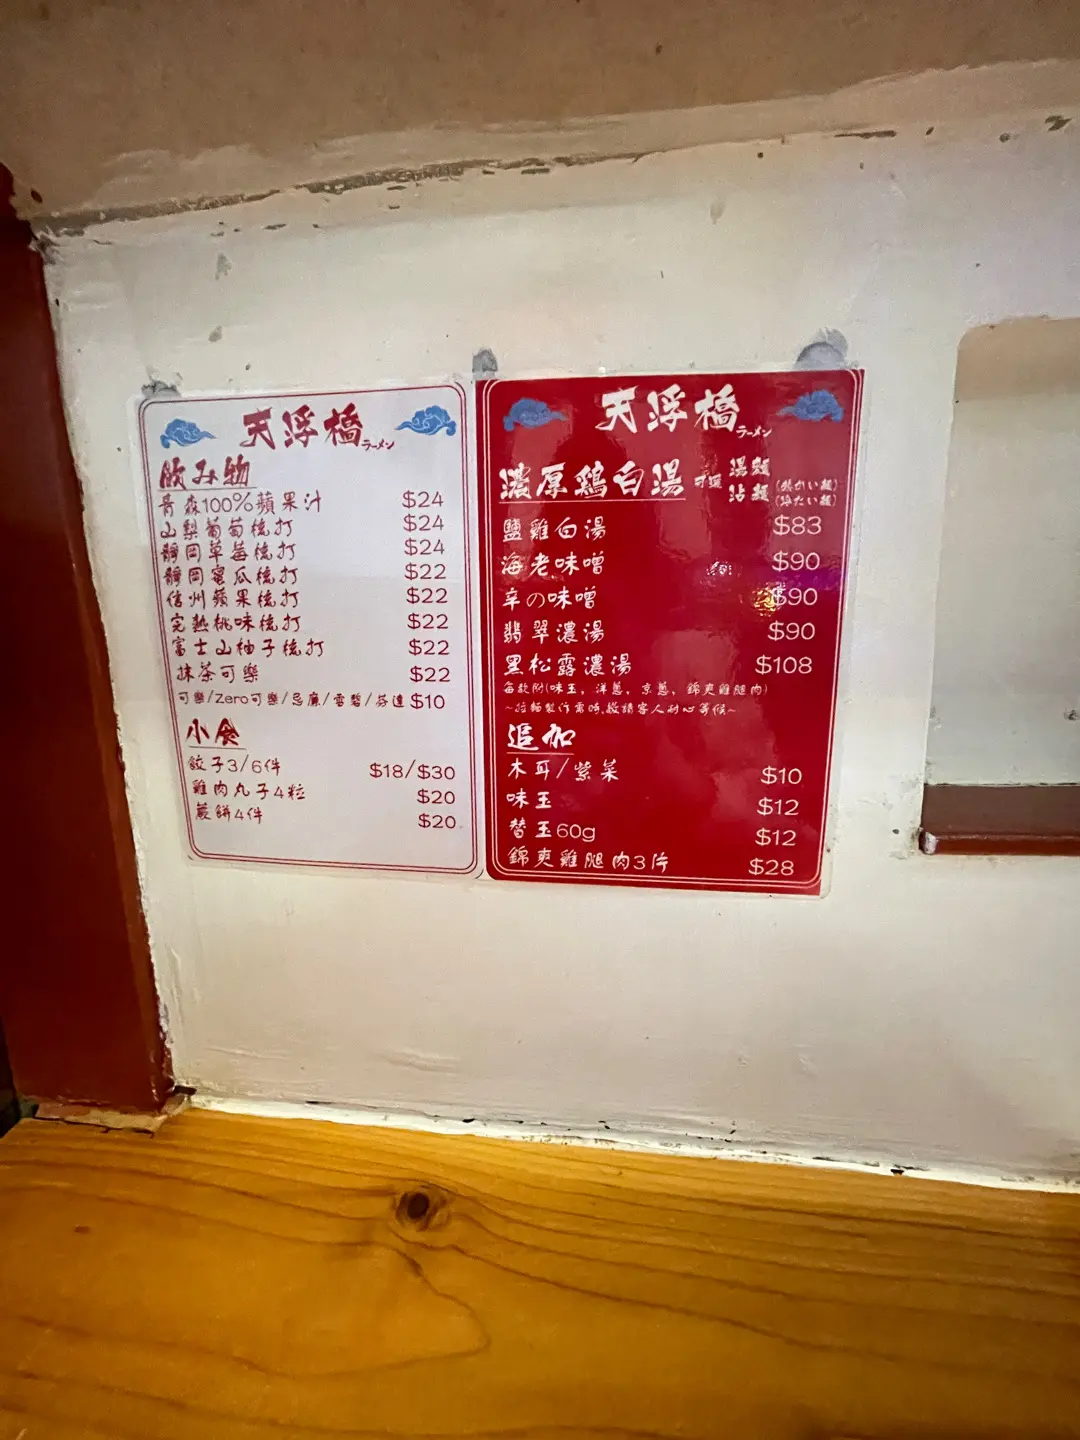 天浮橋
ラーメン
飲み物
青森100%蘋果汁 $24
山梨葡萄梳打 $24
靜岡草莓梳打 $24
靜岡蜜瓜梳打 $22
信州蘋果梳打 $22
完熟桃味梳打 $22
富士山柚子梳打 $22
抹茶可樂 $22
可樂/Zero可樂/忌廉/雪碧/芬達 $10
小食
餃子3/6件 $18/$30
雞肉丸子4粒 $20
蔥餅4件 $20
天浮橋
ラーメン
濃厚鶏白湯 可選 湯麵 沾麵 (熱かい麺) (冷たい麺)
鹽雞白湯 $83
海老味噌 $90
辛の味噌 $90
翡翠濃湯 $90
黑松露濃湯 $108
每款附(味玉, 洋蔥, 京蔥, 錦爽雞腿肉)
~拉麵製作需時,敬請客人耐心等候~
追加
木耳/紫菜 $10
味玉 $12
替玉60g $12
錦爽雞腿肉3片 $28